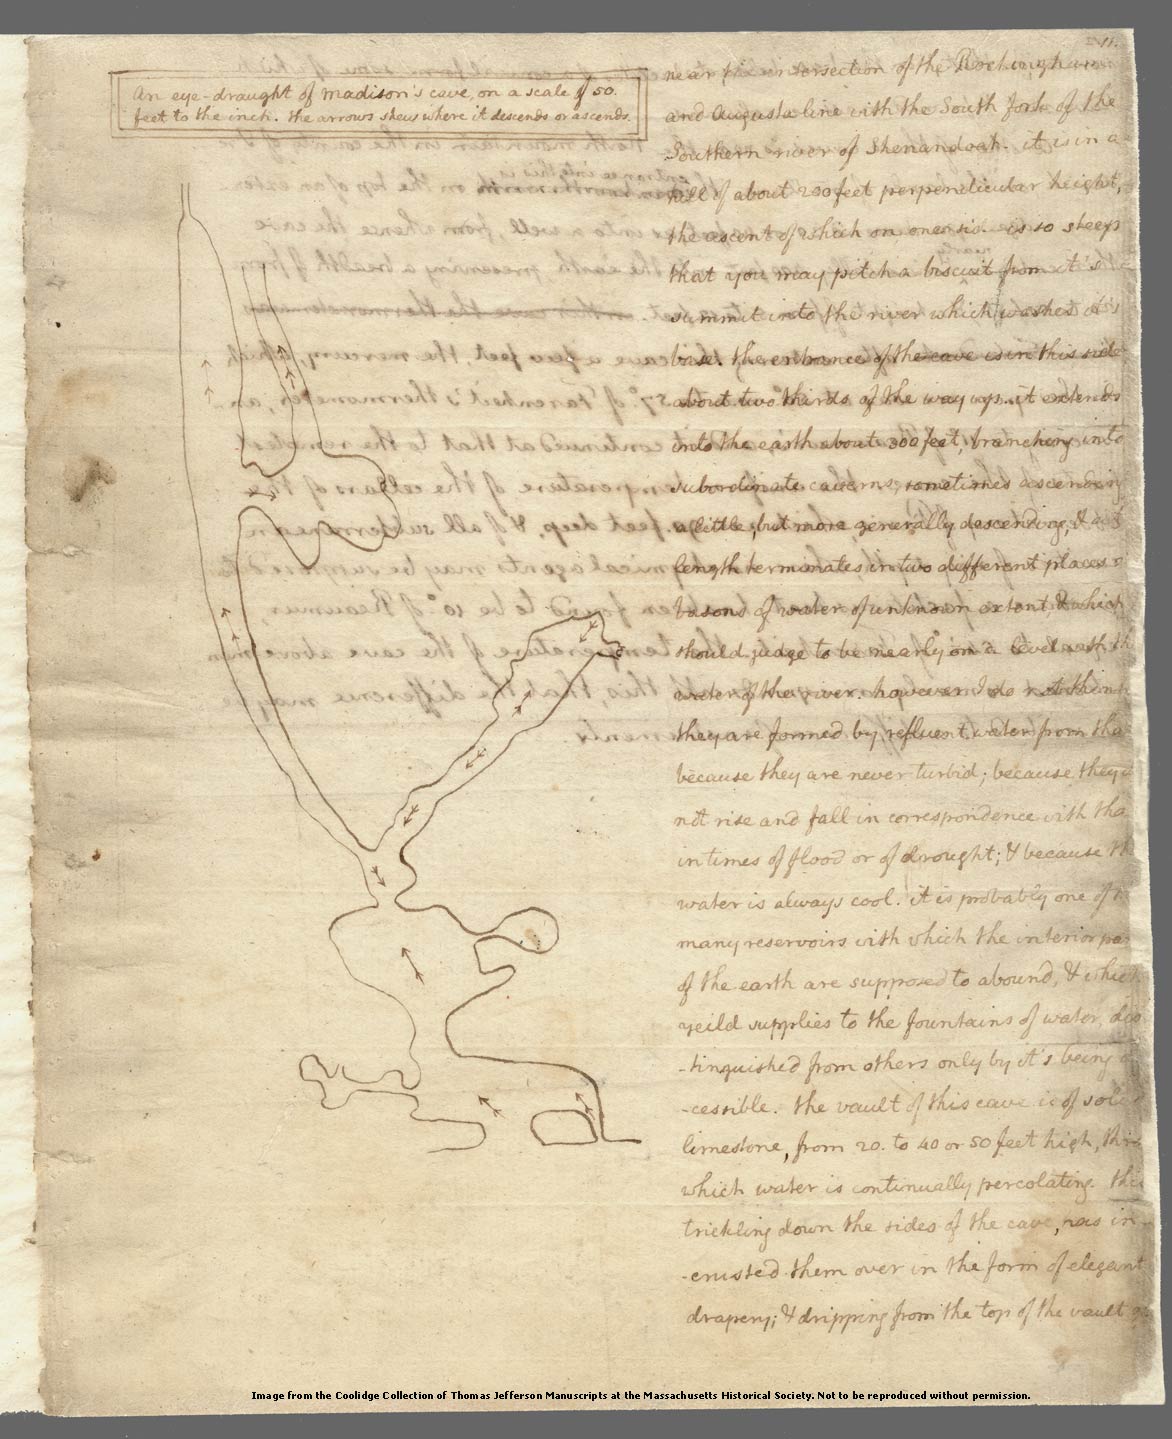 11.
An eye-draught of Madison's cave, on a scale of 50.
feet to the inch. the arrows shew where it descends or ascends.
near the intersection of the Rockingham
and Augusta line with the South fork of the
Southern river of Shenandoah. it is in a
hill of about 200 feet perpendicular height,
the ascent of which on one side is so steep
that you may pitch a biscuit from it's
summit into the river which washes it's
base. the entrance of the cave is in this side
about two thirds of the way up. it extends
into the earth about 300 feet, branching into
subordinate caverns, sometimes ascending
a little, but more generally descending, & at
length terminates in two different places
basons of water of unknown extent & which
should judge to be nearly on a level with th
water of the river. however I do not think
they are formed by refluent water from tha
because they are never turbid; because they
not rise and fall in correspondence with tha
in times of flood or of drought; & because th
water is always cool. it is probably one of
many reservoirs with which the interior pa
of the earth are supposed to abound, & which
yeild supplies to the fountains of water, dis
-tinguished from others only by it's being
-cessible. the vault of this cave is of soli
limestone, from 20. to 40 or 50 feet high, thro
which water is continually percolating. this
trickling down the sides of the cave, has in
-crusted them over in the form of elegant
drapery; & dripping from the top of the vault
Image from the Coolidge Collection of Thomas Jefferson Manuscripts at the Massachusetts Historical Society. Not to be reproduced without permission.